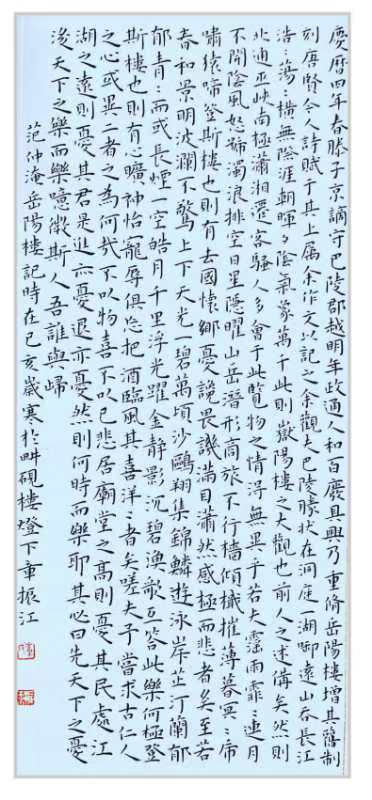 慶曆四年春滕子京謫守巴陵郡越明年政通人和百廢具興乃重脩岳陽樓增其舊制
刻唐賢今人詩賦于其上屬余作文以記之余觀夫巴陵勝狀在洞庭一湖啣遠山吞長江
浩〻蕩〻橫無際涯朝暉夕陰氣象萬千此則嶽陽樓之大觀也前人之述備矣然則
北通巫峽南極瀟湘遷客騷人多會于此覽物之情得無異乎若夫霪雨霏〻連月
不開陰風怒號濁浪排空日星隱曜山岳潛形商旅不行檣傾檝摧薄暮冥〻虎
嘯猿啼登斯樓也則有去國懷鄉憂讒畏譏滿目蕭然感極而悲者矣至若
春和景明波瀾不驚上下天光一碧萬頃沙鷗翔集錦鱗遊泳岸芷汀蘭郁
郁青〻而或長煙一空皓月千里浮光躍金靜影沉碧漁歌互答此樂何極登
斯樓也則有心曠神怡寵辱俱忘把酒臨風其喜洋〻者矣嗟夫予嘗求古仁人
之心或異二者之為何哉不以物喜不以己悲居廟堂之高則憂其民處江
湖之遠則憂其君是進亦憂退亦憂然則何時而樂耶其必曰先天下之憂
後天下之樂而樂噫微斯人吾誰與歸
范仲淹岳陽樓記時在己亥歲寒於畊硯樓燈下童振江